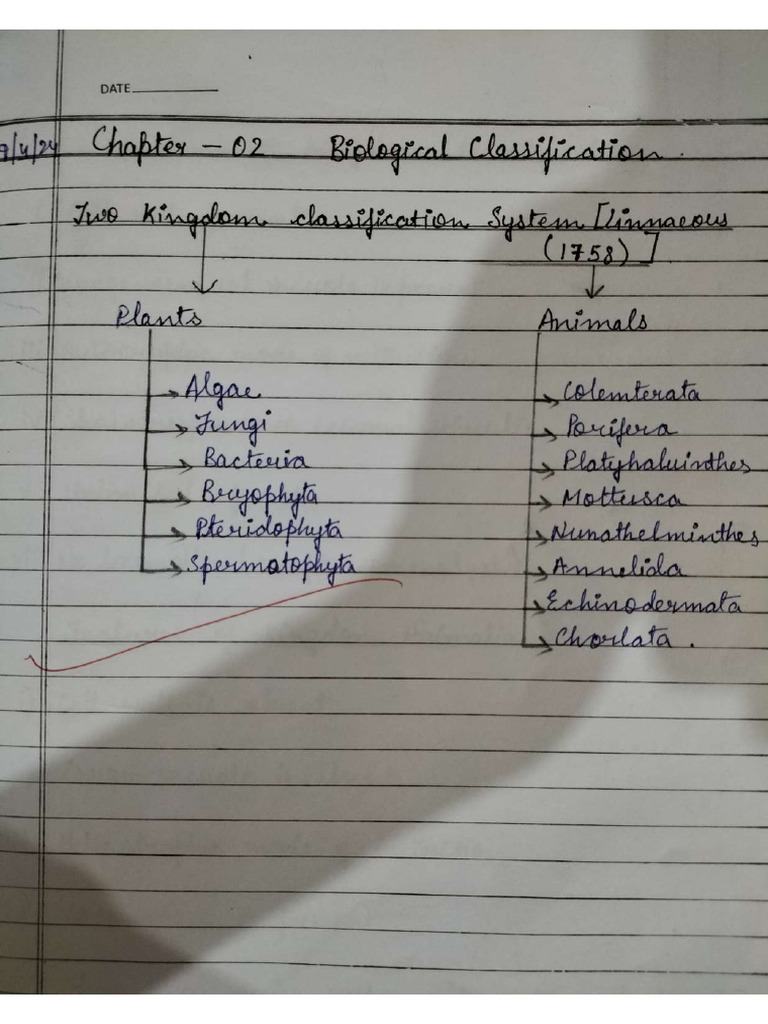 DATE
9/4/24 Chapter - 02 Biological Classification.
Two Kingdom classification System [Linnaeous
(1758)]
Plants Animals
Algae Colemterata
Fungi Porifera
Bacteria Platyhaluinthes
Bryophyta Mottusca
Pteridophyta Nunathelminthes
Spermatophyta Annelida
Echinodermata
Chorlata.